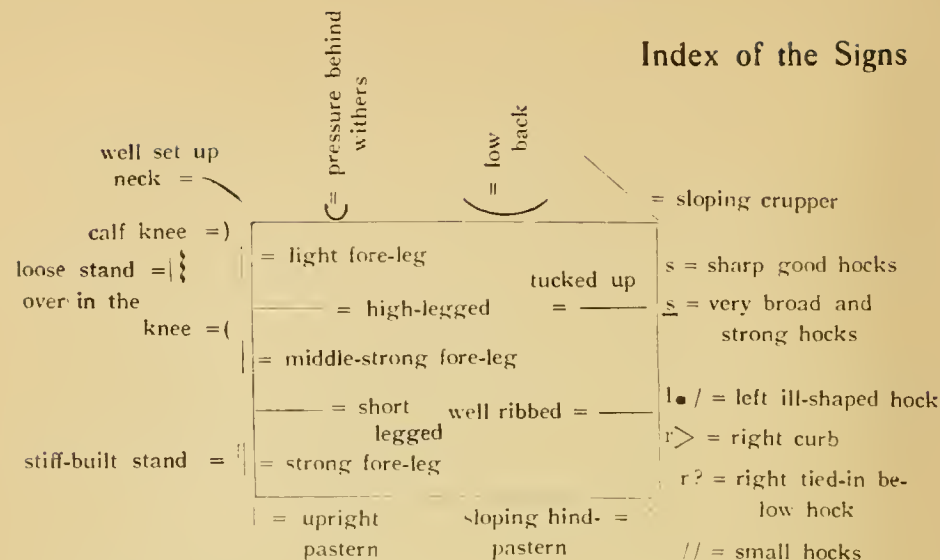 Index of the Signs
= pressure behind
withers
= low
back
well set up
neck =
= sloping crupper
calf knee =)
loose stand =
over in the
knee =(
= light fore-leg
= high-legged
tucked up
=
= middle-strong fore-leg
= short
legged
well ribbed =
stiff-built stand =
= strong fore-leg
s = sharp good hocks
s = very broad and
strong hocks
l. / = left ill-shaped hock
r> = right curb
r? = right tied-in be-
low hock
// = small hocks
| = upright
pastern
sloping hind- =
pastern